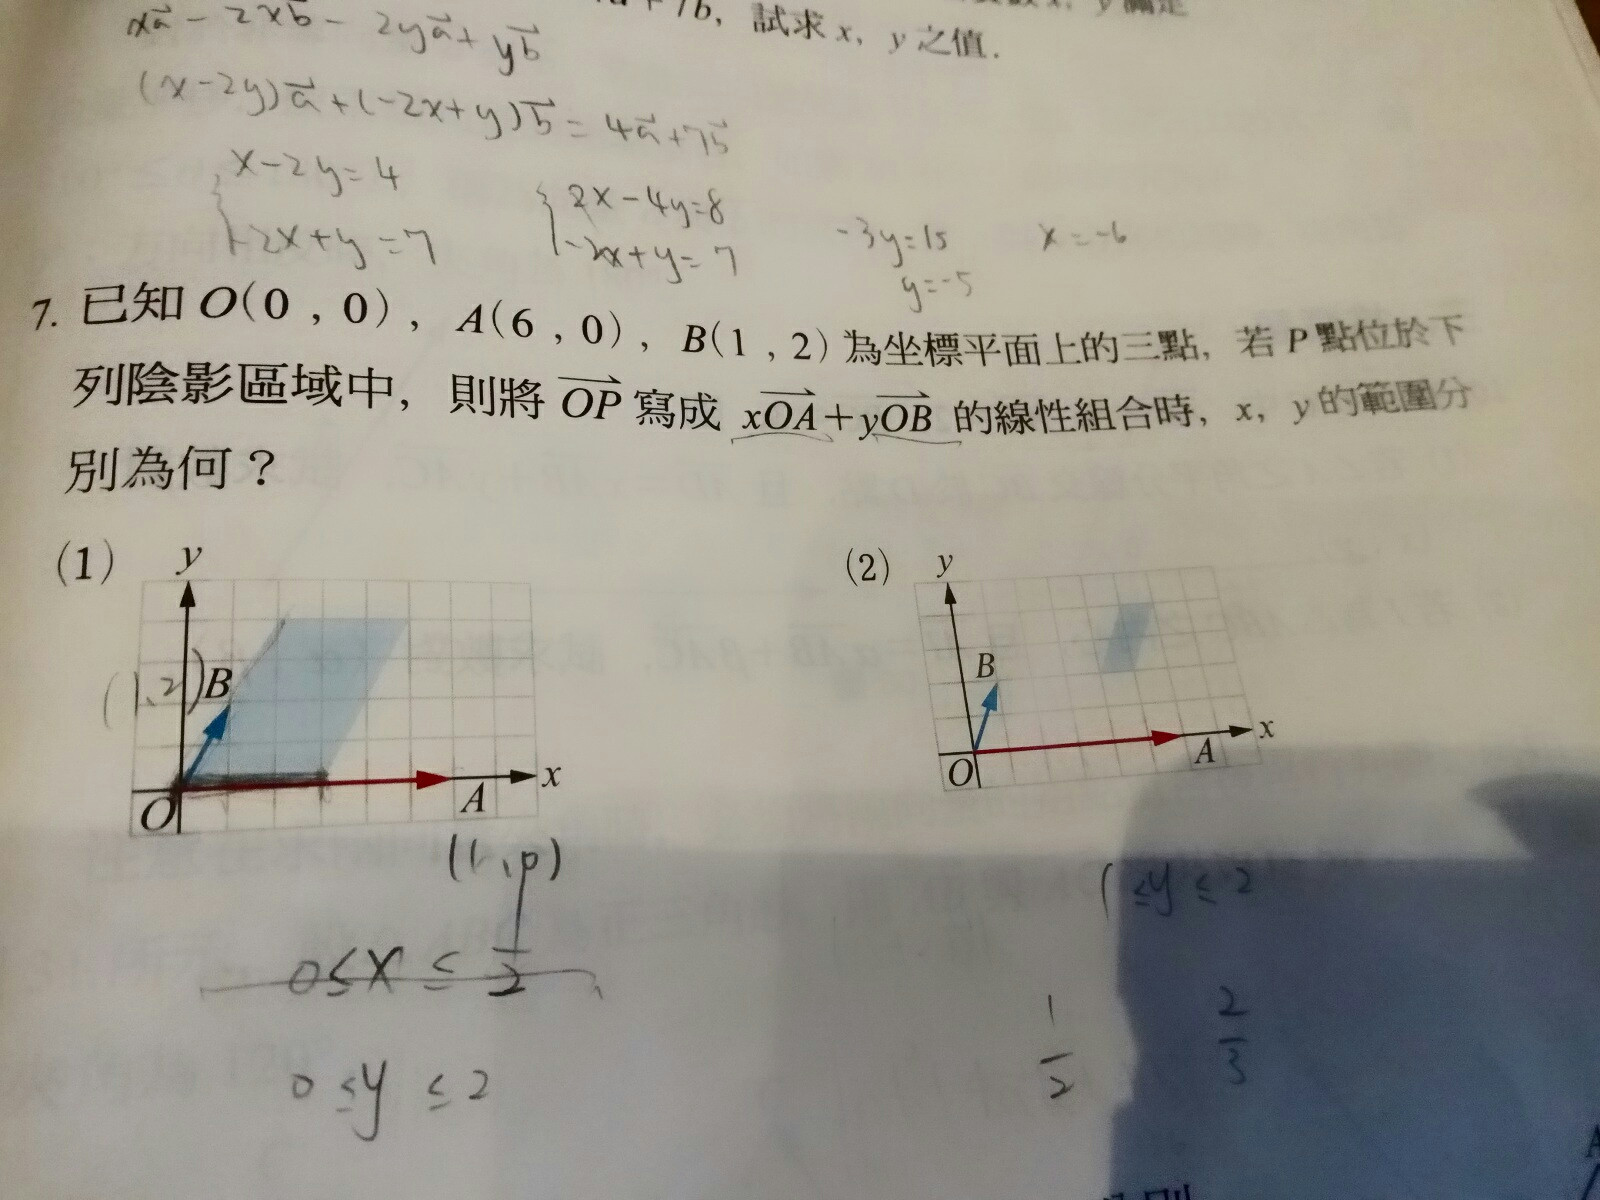 xa⃗ - 2xb⃗ - 2ya⃗ + yb⃗
7b, 試求 x, y 之值.
(x-2y)a⃗ + (-2x+y)b⃗ = 4a⃗ + 7b⃗
x-2y=4
-2x+y=7
2x-4y=8
-2x+y=7
-3y=15
y=-5
x=-6
7. 已知 O(0 , 0) , A(6 , 0) , B(1 , 2) 為坐標平面上的三點, 若 P 點位於下
列陰影區域中, 則將 OP⃗ 寫成 xOA⃗+yOB⃗ 的線性組合時, x, y 的範圍分
別為何?
(1)
y
(1,2)
B
O
A
x
(1,0)
0≤x≤1/2
0≤y≤2
(2)
y
B
O
A
x
1≤y≤2
1/2
2/3